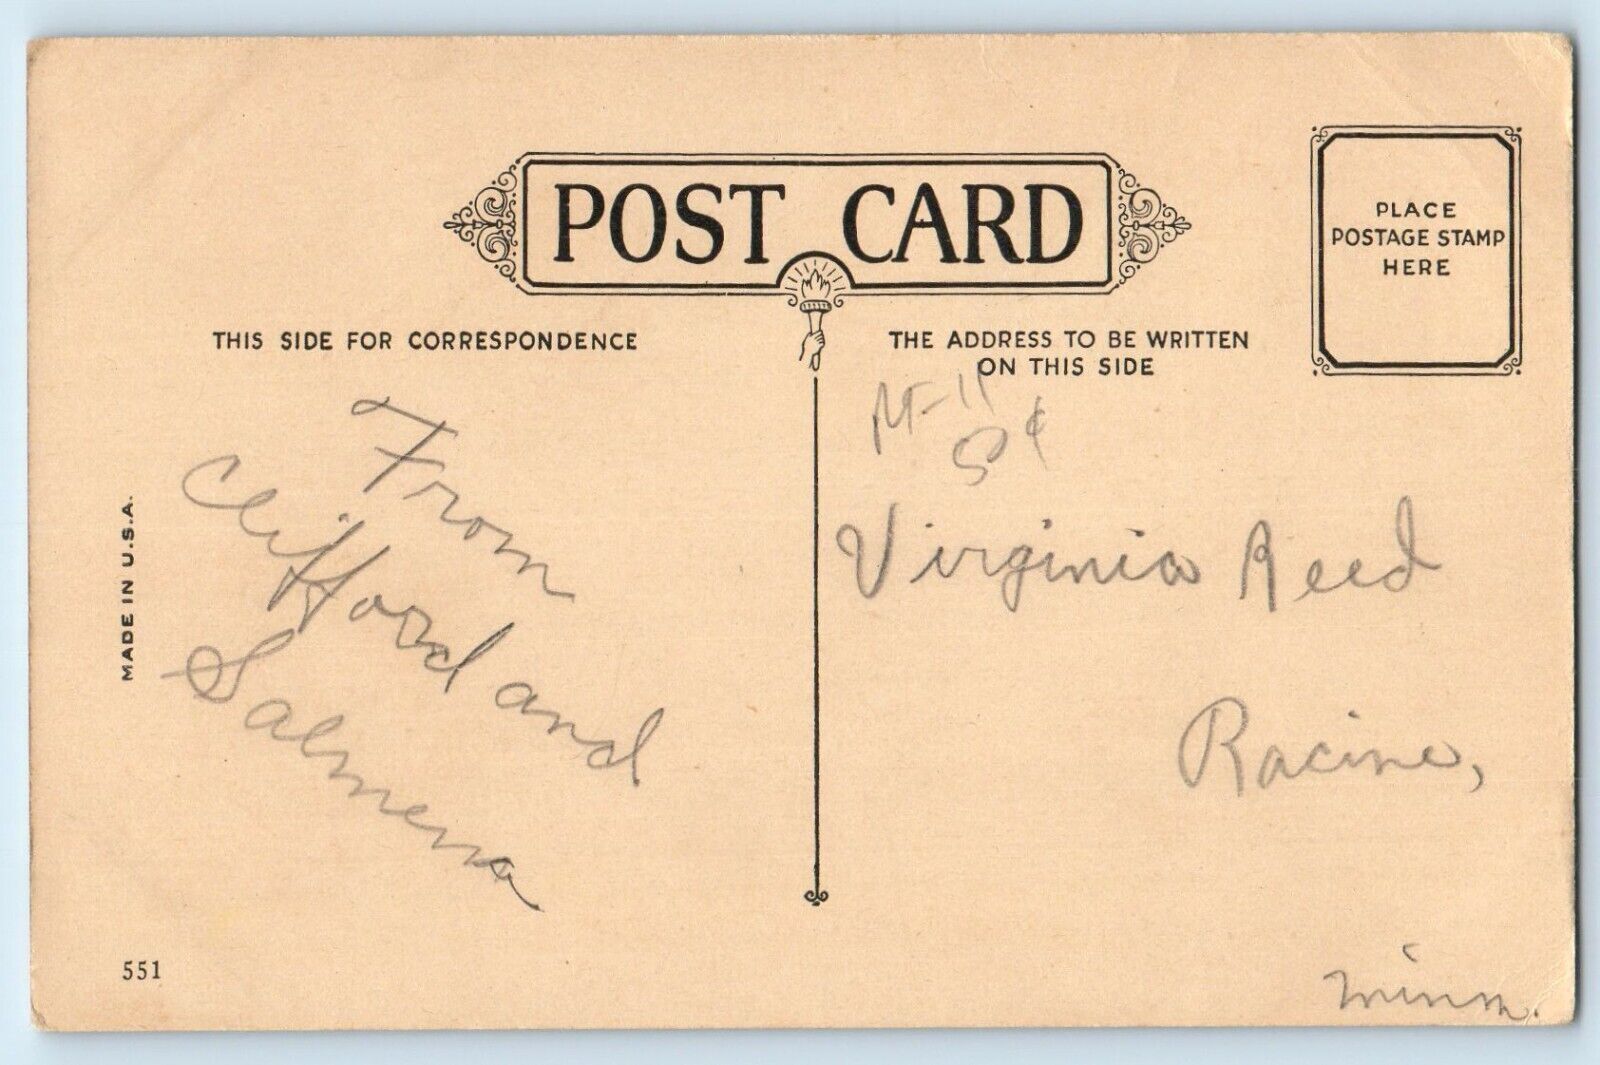 POST CARD
PLACE
POSTAGE STAMP
HERE
THIS SIDE FOR CORRESPONDENCE
THE ADDRESS TO BE WRITTEN
ON THIS SIDE
From
Clifford and
Salmena
MADE IN U.S.A.
551
M-11
5¢
Virginia Reed
Racine,
Minn.